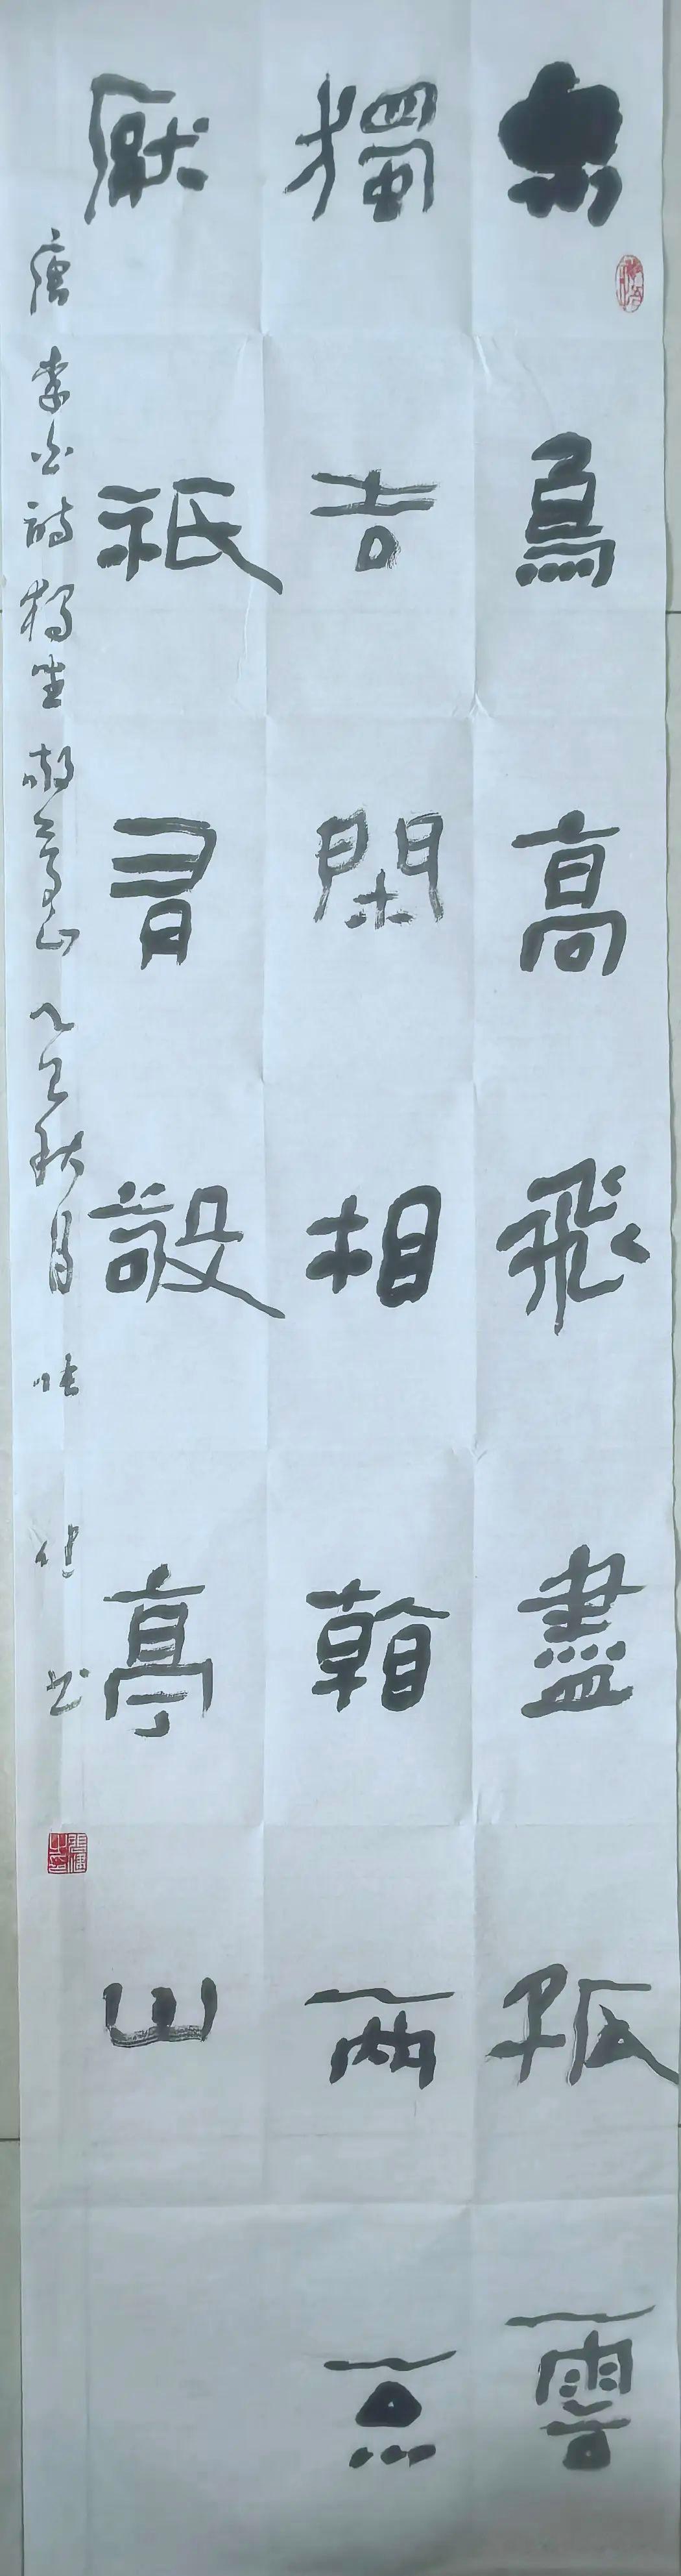 眾鳥高飛盡孤雲
獨去閑相看兩不
厭祇有敬亭山
唐李白詩獨坐敬亭山乙巳秋月張健书
張健之印